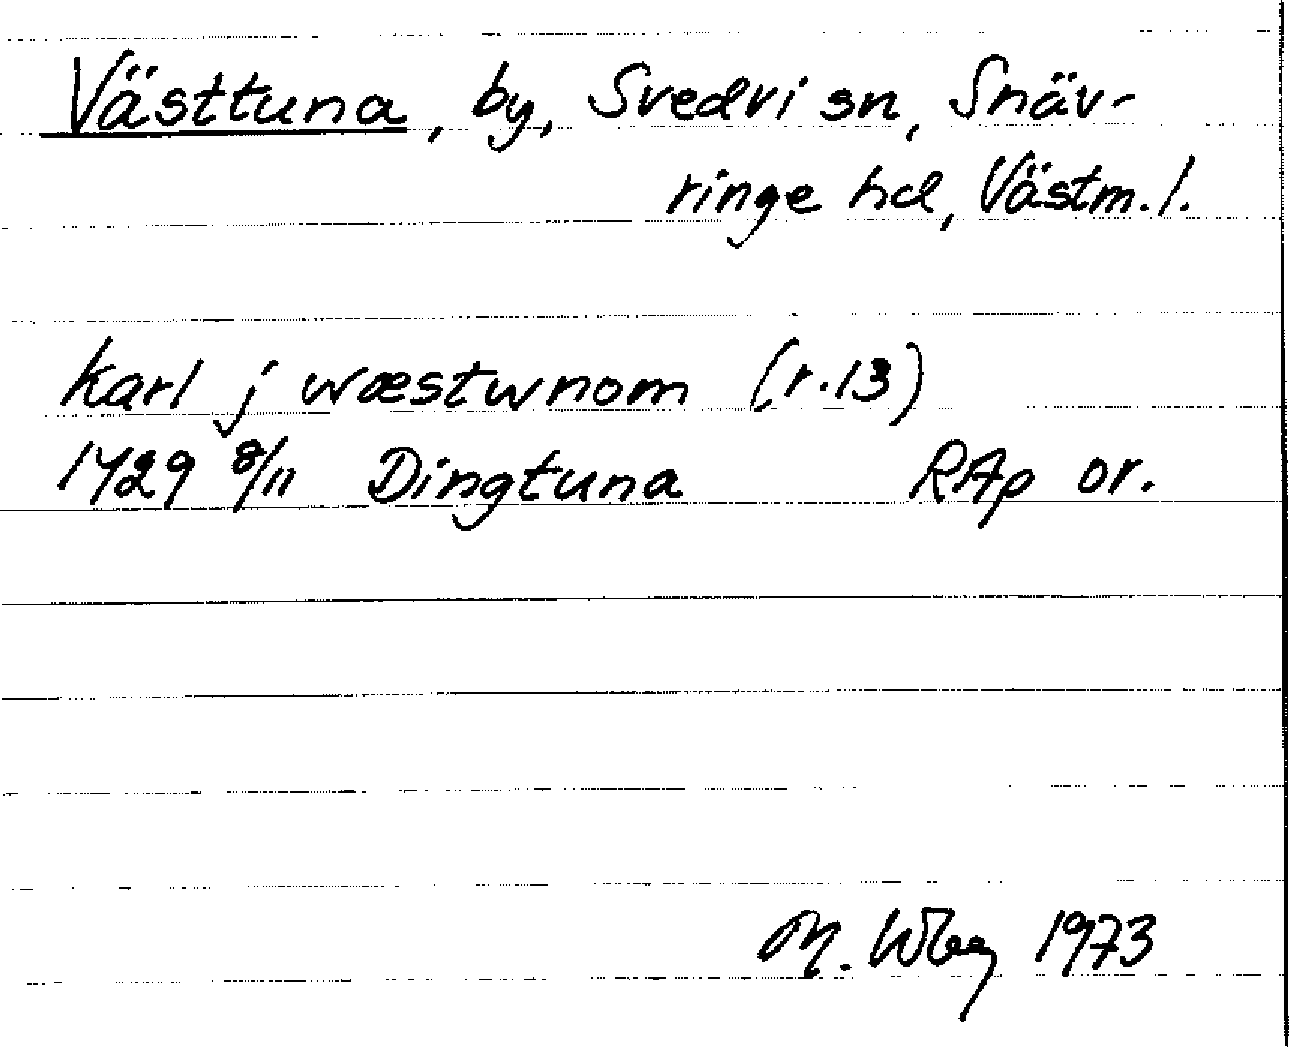 Västtuna, by, Svedvi sn, Snäv-
ringe hd, Västm. l.
karl j wæstwnom (r.13)
1429 8/11 Dingtuna RAp or.
M. 1973